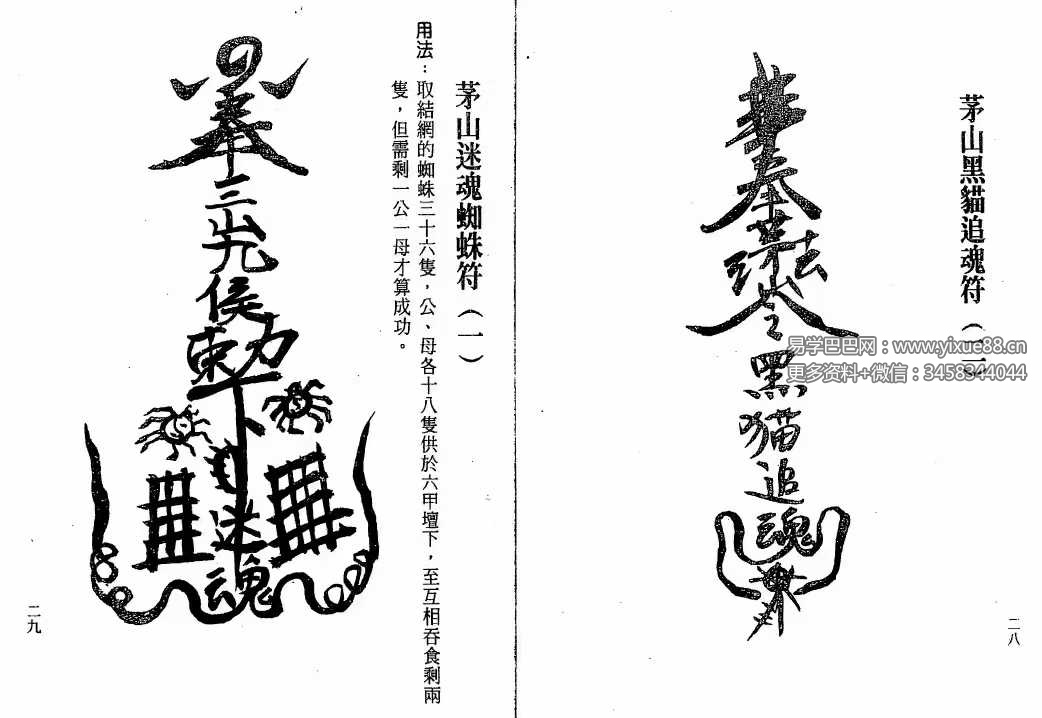 茅山黑貓追魂符（二）
奉
法
令
黑
貓
追
魂
二八
易学巴巴网：www.yixue88.cn
更多资料+微信：3458344044
茅山迷魂蜘蛛符（一）
用法：取結網的蜘蛛三十六隻，公、母各十八隻供於六甲壇下，至互相吞食剩兩
隻，但需剩一公一母才算成功。
奉
三山九
侯
敕
下
迷
魂
二九